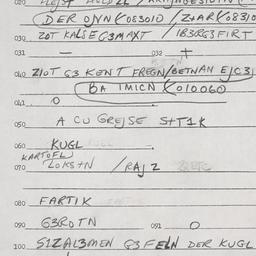 DER ONN (083010 / ZTAR (08310
030 ZOT KALSE G3MAXT / IB3RG3FIRT
031 — 032 +
040 ZIOT G3 KENT FREGN/BETNAN EJC3J
BA IMICN (010060
041 O
050 A CU GREJSE STT1K
060 KUGL
KARTOFL
070 ZOKS+N / RAJ 2
080 FARTIK
090 G3ROTN 091 O
100 S1ZAL3MEN G3 FELN DER KUGL